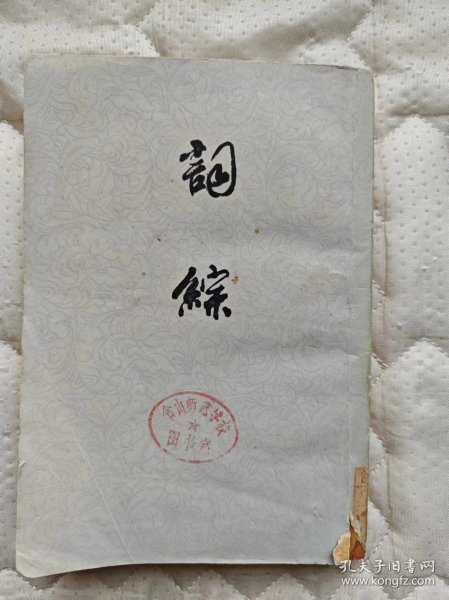 詞
綜
含山师范学校
图书馆
孔夫子旧书网
www.kongfz.com